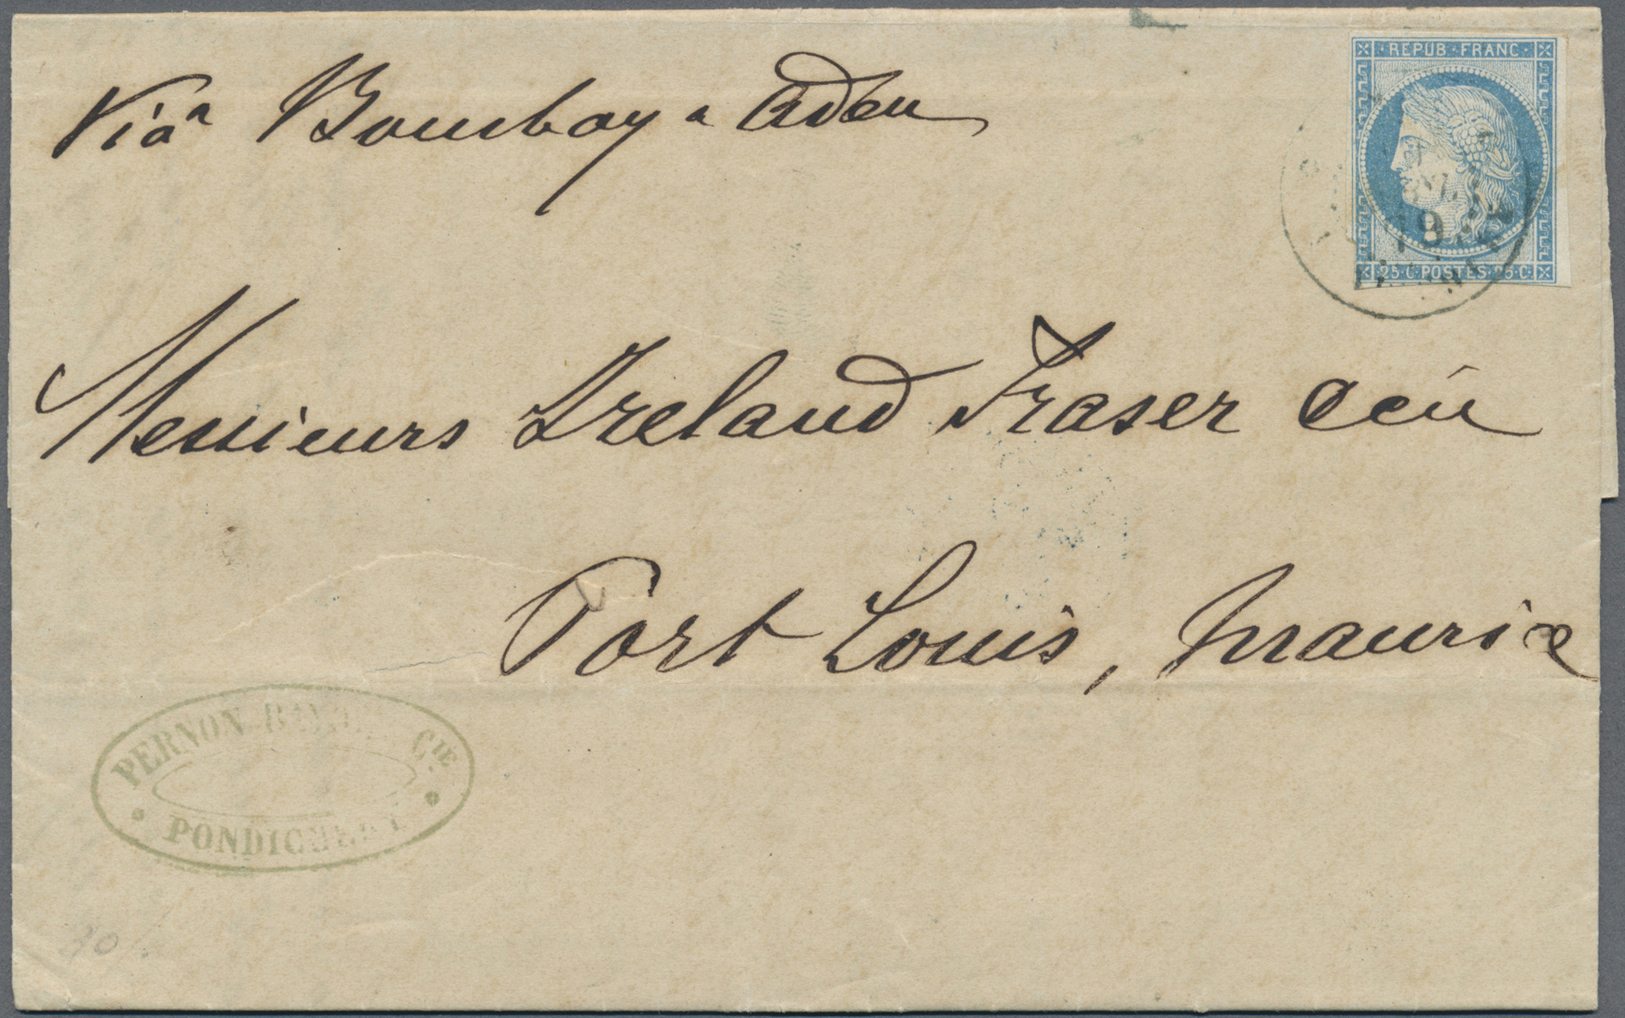 Viâ Bombay & Aden
REPUB · FRANC ·
79
25 · C · POSTES · 25 · C ·
Messieurs Ireland Fraser &
Port Louis, Maurice
PERNON CIE
PONDICHERY